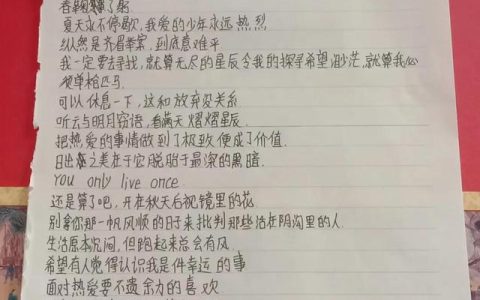 夏天永不停歇，我爱的少年永远热烈
纵然是齐眉举案，到底意难平
我一定要去寻找，就算无尽的星辰令我的探寻希望渺茫，就算我必
须单枪匹马.
可以休息一下，这和放弃没关系
听云与明月窃语，看满天熠熠星辰.
把热爱的事情做到了极致便成了价值.
日出之美在于它脱胎于最深的黑暗.
You only live once.
还是算了吧，开在秋天后视镜里的花
别拿你那一帆风顺的日子来批判那些活在阴沟里的人.
生活原本沉闷，但跑起来总会有风.
希望有人觉得认识我是件幸运的事
面对热爱要不遗余力的喜欢